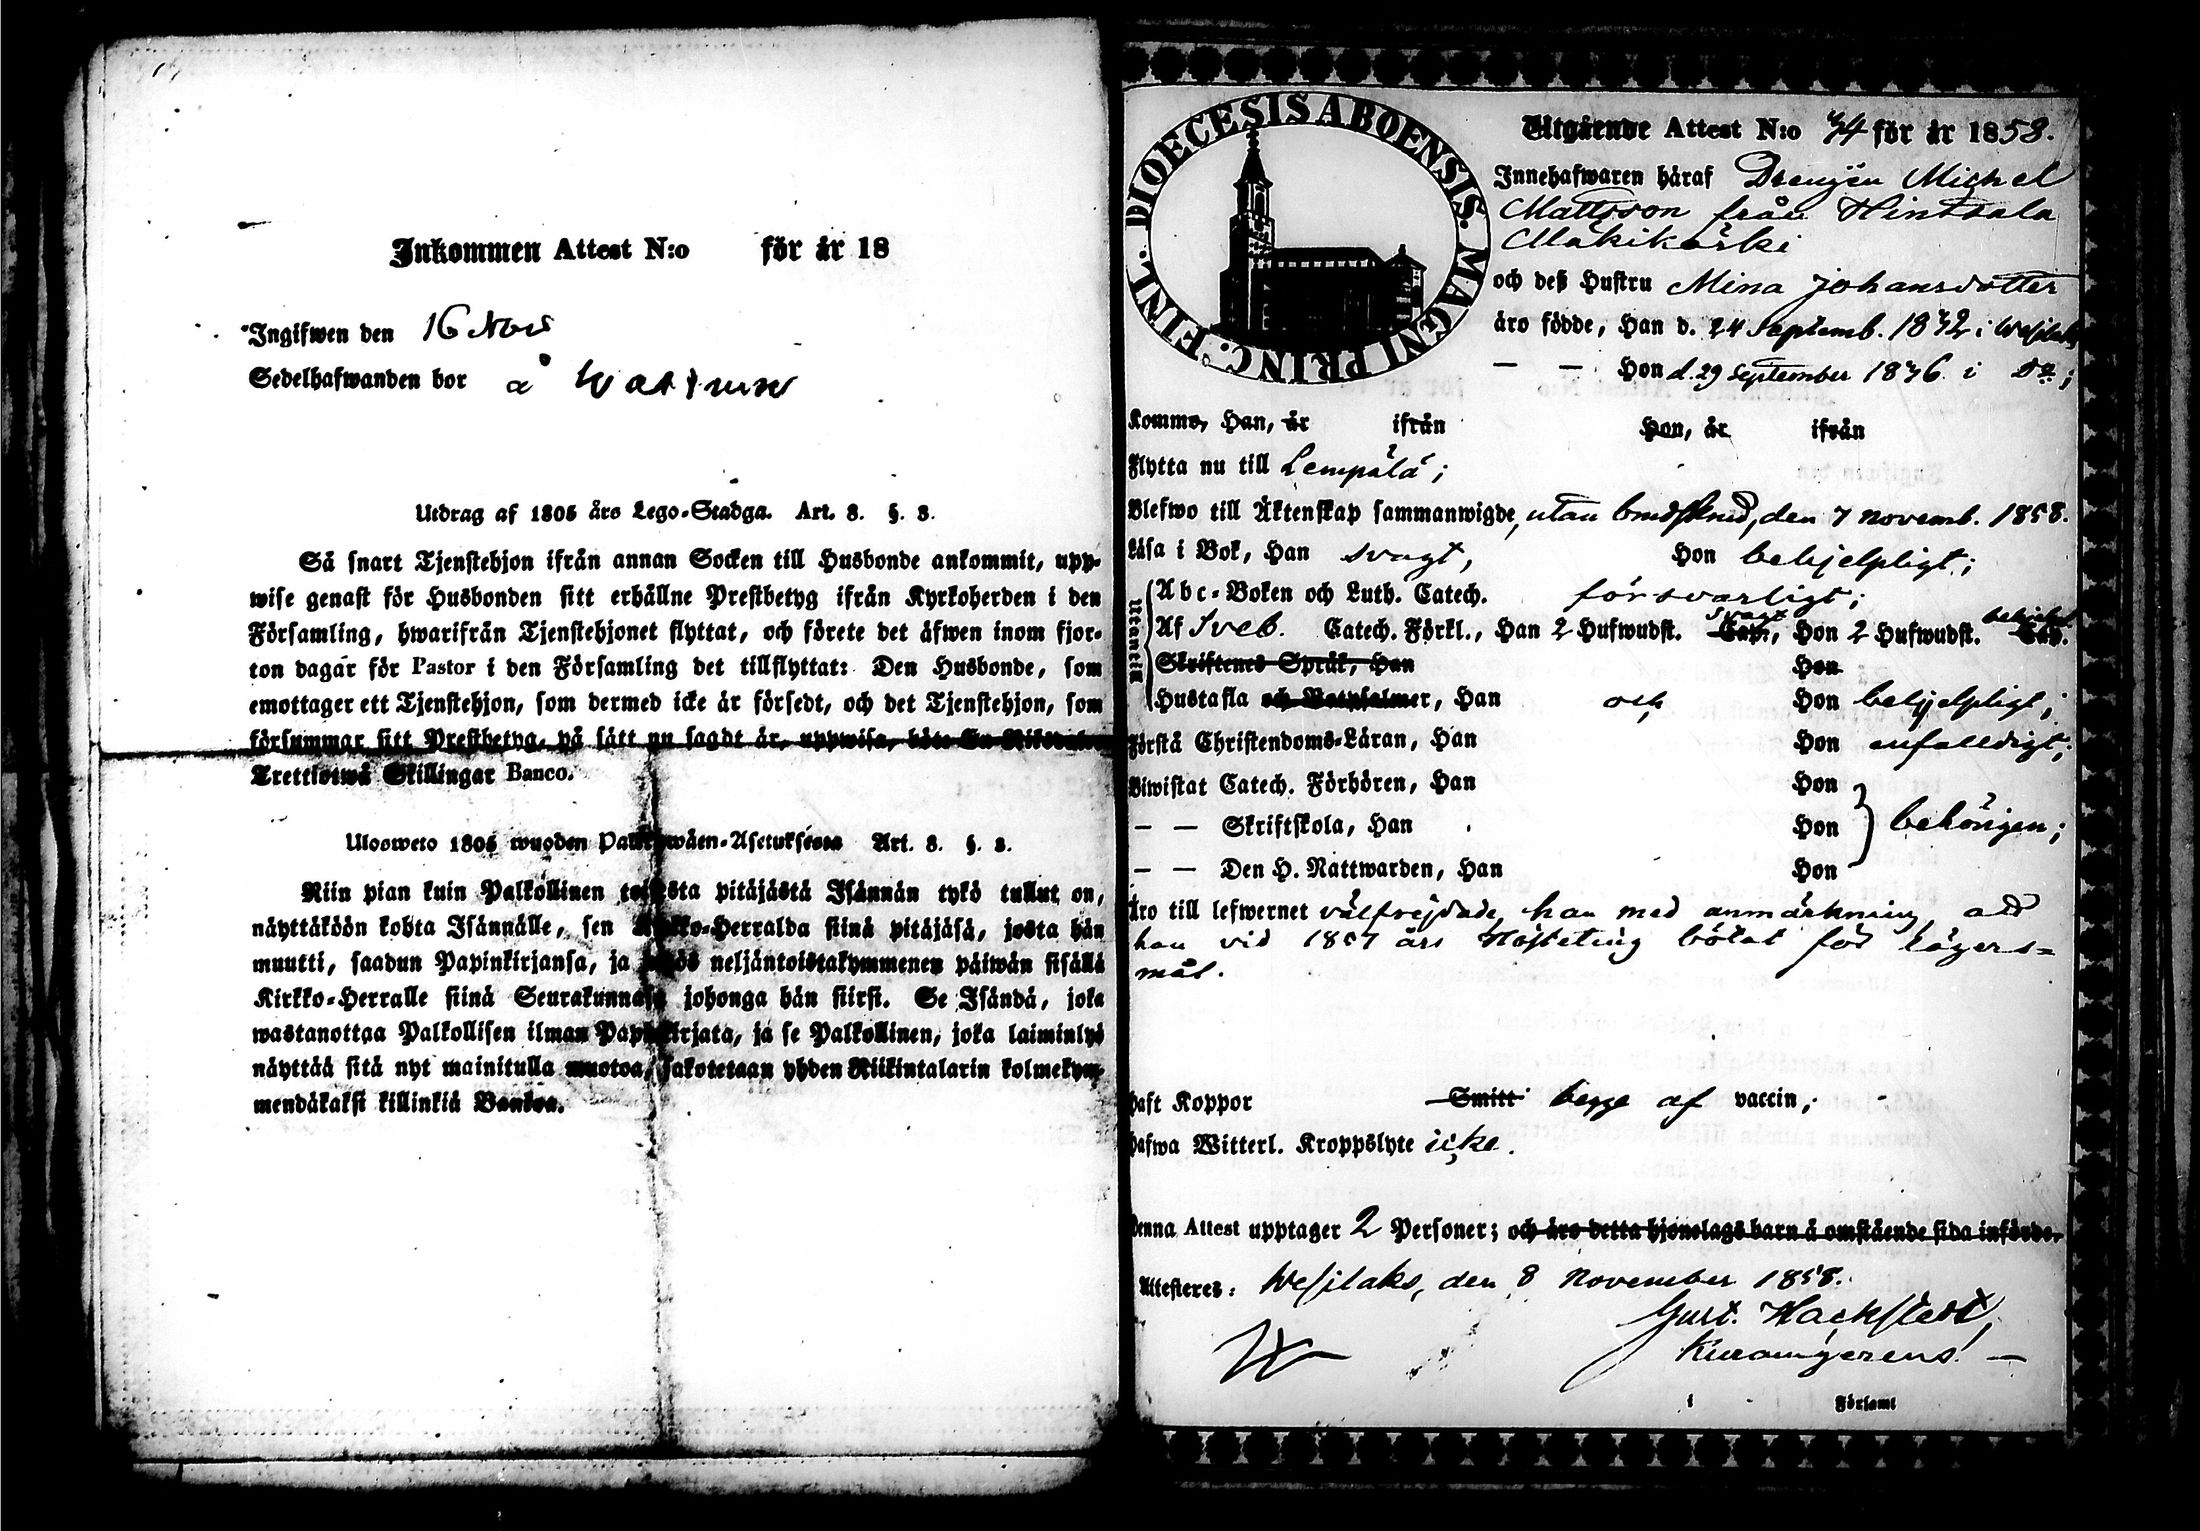 Inkommen Attest N:o för år 18
Ingifwen den 16 Nov
Sedelhafwanden bor å
Utdrag af 1805 års Lego-Stadga. Art. 8. §. 3.
Så snart Tjenstehjon ifrån annan Socken till Husbonde ankommit, upp-
wise genast för Husbonden sitt erhållne Prestbetyg ifrån Kyrkoherden i den
Församling, hwarifrån Tjenstehjonet flyttat, och förete det äfwen inom fjor-
ton dagar för Pastor i den Församling det tillflyttat: Den Husbonde, som
emottager ett Tjenstehjon, som dermed icke är försedt, och det Tjenstehjon, som
försummar sitt Prestbetyg, på sätt nu sagdt är, uppwisa, böte En Riksdaler
Trettiotwå Skillingar Banco.
Ulosweto 1805 wuoden Palkkawäen-Asetuksesta Art. 8. §. 3.
Niin pian kuin Palkollinen toisesta pitäjästä Isännän tykö tullut on,
näyttäköön kohta Isännälle, sen Kirkko-Herralda siinä pitäjäsä, josta hän
muutti, saadun Papinkirjansa, ja myös neljäntoistakymmenen päiwän sisällä
Kirkko-Herralle siinä Seurakunnasa johonga hän siirsi. Se Isändä, joka
wastanottaa Palkollisen ilman Papinkirjata, ja se Palkollinen, joka laiminlyö
näyttää sitä nyt mainitulla muotoa, sakotetaan yhden Riikintalarin kolmekym-
mendäkaksi killinkiä Bankoa.
DIOECESIS ABOENSIS. MAGNI PRINC. FINL.
Utgående Attest N:o 74 för år 1858.
Innehafwaren häraf Drengen Michel
Mattsson från Hintsala
Mäkikärki
och deß Hustru Mina Johansdotter
äro födde, Han d. 24 Septemb. 1832 i Wesilaks
— — Hon d. 29 September 1836 i Do;
Komme, Han, är ifrån Hon, är ifrån
Flytta nu till Lempälä;
Blefwo till Äktenskap sammanwigde, utan brudskrud, den 7 Novemb. 1858.
Läsa i Bok, Han svagt, Hon behjelpligt;
Utantill
Abc-Boken och Luth. Catech. försvarligt;
Af Sveb. Catech. Förkl., Han 2 Hufwudst. svagt Cap., Hon 2 Hufwudst. Cap.
Skriftenes Språk, Han Hon
Hustafla och Botpsalmer, Han och Hon behjelpligt;
Förstå Christendoms-Läran, Han Hon enfalldigt;
Biwistat Catech. Förhören, Han Hon
— — Skriftskola, Han Hon behörigen;
— — Den H. Nattwarden, Han Hon
Äro till lefwernet välfrejdade, han med anmärkning, att
han vid 1857 års Hösteting bötat för lägers=
mål.
Haft Koppor Smitt begge af vaccin;
Hafwa Witterl. Kroppslyte icke.
Denna Attest upptager 2 Personer; och äro detta hjonelags barn å omstående sida införde.
Attesteres: Wesilaks, den 8 November 1858.
Gust. Hackstedt,
i Församl